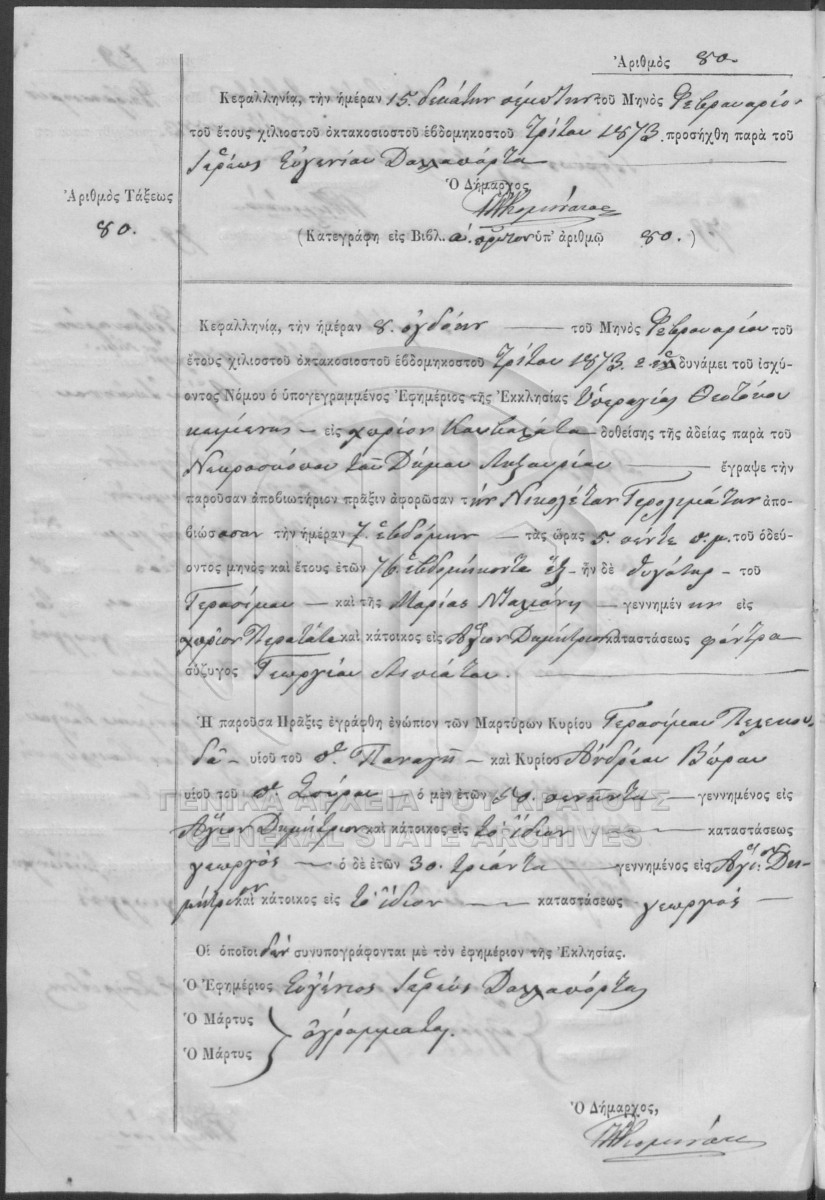 Ἀριθμὸς 80.
Κεφαλληνίᾳ, τὴν ἡμέραν 15. δεκάτην πέμπτην τοῦ Μηνὸς Φεβρουαρίου
τοῦ ἔτους χιλιοστοῦ ὀκτακοσιοστοῦ ἑβδομηκοστοῦ Τρίτου 1873. προσήχθη παρὰ τοῦ
Ἱερέως Εὐγενίου Δαλλαπόρτα
Ὁ Δήμαρχος
Ἀριθμὸς Τάξεως
80.
(Κατεγράφη εἰς Βιβλ. α. πρῶτον ὑπ' ἀριθμῷ 80.)
Κεφαλληνίᾳ, τὴν ἡμέραν 8. ὀγδόην τοῦ Μηνὸς Φεβρουαρίου τοῦ
ἔτους χιλιοστοῦ ὀκτακοσιοστοῦ ἑβδομηκοστοῦ Τρίτου 1873. δυνάμει τοῦ ἰσχύ-
οντος Νόμου ὁ ὑπογεγραμμένος Ἐφημέριος τῆς Ἐκκλησίας Ὑπεραγίας Θεοτόκου
κειμένης – εἰς χωρίον δοθείσης τῆς ἀδείας παρὰ τοῦ
Νεκροσκόπου τοῦ Δήμου Ληξουρίου ἔγραψε τὴν
παροῦσαν ἀποβιωτήριον πρᾶξιν ἀφορῶσαν τὴν Νικολέταν Γερολιμάτην ἀπο-
βιώσασαν τὴν ἡμέραν 7. ἑβδόμην – τὰς ὥρας 5. πέντε π.μ. τοῦ ὁδεύ-
οντος μηνὸς καὶ ἔτους ἐτῶν 76. ἑβδομήκοντα ἕξ – ἦν δὲ θυγάτηρ – τοῦ
Γερασίμου – καὶ τῆς Μαρίας – γεννημένην εἰς
χωρίον Περατάτα καὶ κάτοικος εἰς Ἅγιον Δημήτριον καταστάσεως φάντρα
σύζυγος Γεωργίου
Ἡ παροῦσα Πρᾶξις ἐγράφθη ἐνώπιον τῶν Μαρτύρων Κυρίου Γερασίμου Πελεκου-
δᾶ – υἱοῦ τοῦ π. Παναγῆ – καὶ Κυρίου Ἀνδρέου Βώρου
υἱοῦ τοῦ π. Σπύρου – ὁ μὲν ἐτῶν πενῆντα – γεννημένος εἰς
Ἅγιον Δημήτριον καὶ κάτοικος εἰς τὸ ἴδιον – καταστάσεως
γεωργός – ὁ δὲ ἐτῶν 30. τριάντα – γεννημένος εἰς Ἅγιον Δη-
μήτριον καὶ κάτοικος εἰς τὸ ἴδιον – καταστάσεως γεωργός –
Οἱ ὁποῖοι δὲν συνυπογράφονται μὲ τὸν ἐφημέριον τῆς Ἐκλησίας.
Ὁ Ἐφημέριος Εὐγένιος Ἱερεὺς Δαλλαπόρτας
Ὁ Μάρτυς
ἀγράμματοι.
Ὁ Μάρτυς
Ὁ Δήμαρχος,
ΓΕΝΙΚΑ ΑΡΧΕΙΑ ΤΟΥ ΚΡΑΤΟΥΣ
GENERAL STATE ARCHIVES